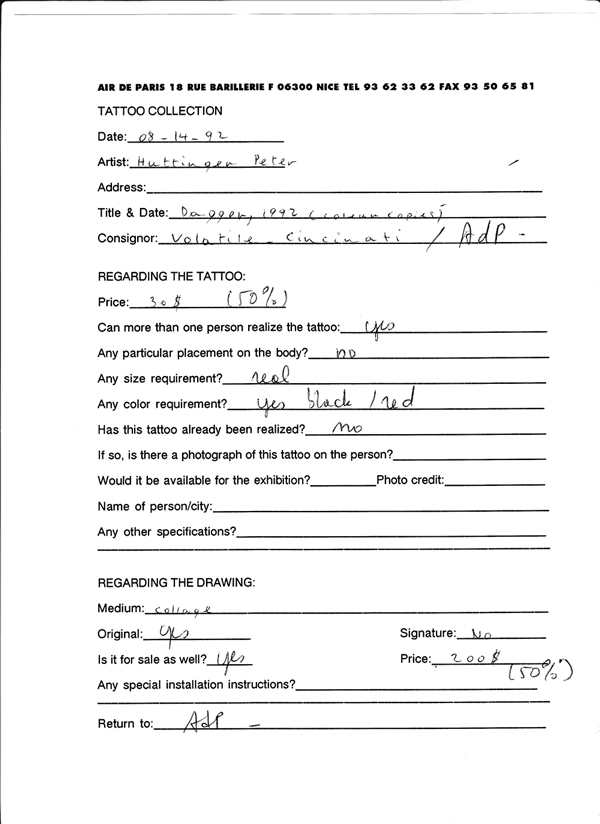 AIR DE PARIS 18 RUE BARILLERIE F 06300 NICE TEL 93 62 33 62 FAX 93 50 65 81
TATTOO COLLECTION
Date: 08-14-92
Artist: Huttinger Peter
Address:
Title & Date: Dagger, 1992 (colour copies)
Consignor: Volatile - Cincinati / AdP -
REGARDING THE TATTOO:
Price: 30$ (50%)
Can more than one person realize the tattoo: yes
Any particular placement on the body? no
Any size requirement? real
Any color requirement? yes black / red
Has this tattoo already been realized? no
If so, is there a photograph of this tattoo on the person?
Would it be available for the exhibition? Photo credit:
Name of person/city:
Any other specifications?
REGARDING THE DRAWING:
Medium: collage
Original: yes Signature: No
Is it for sale as well? yes Price: 200$ (50%)
Any special installation instructions?
Return to: AdP -